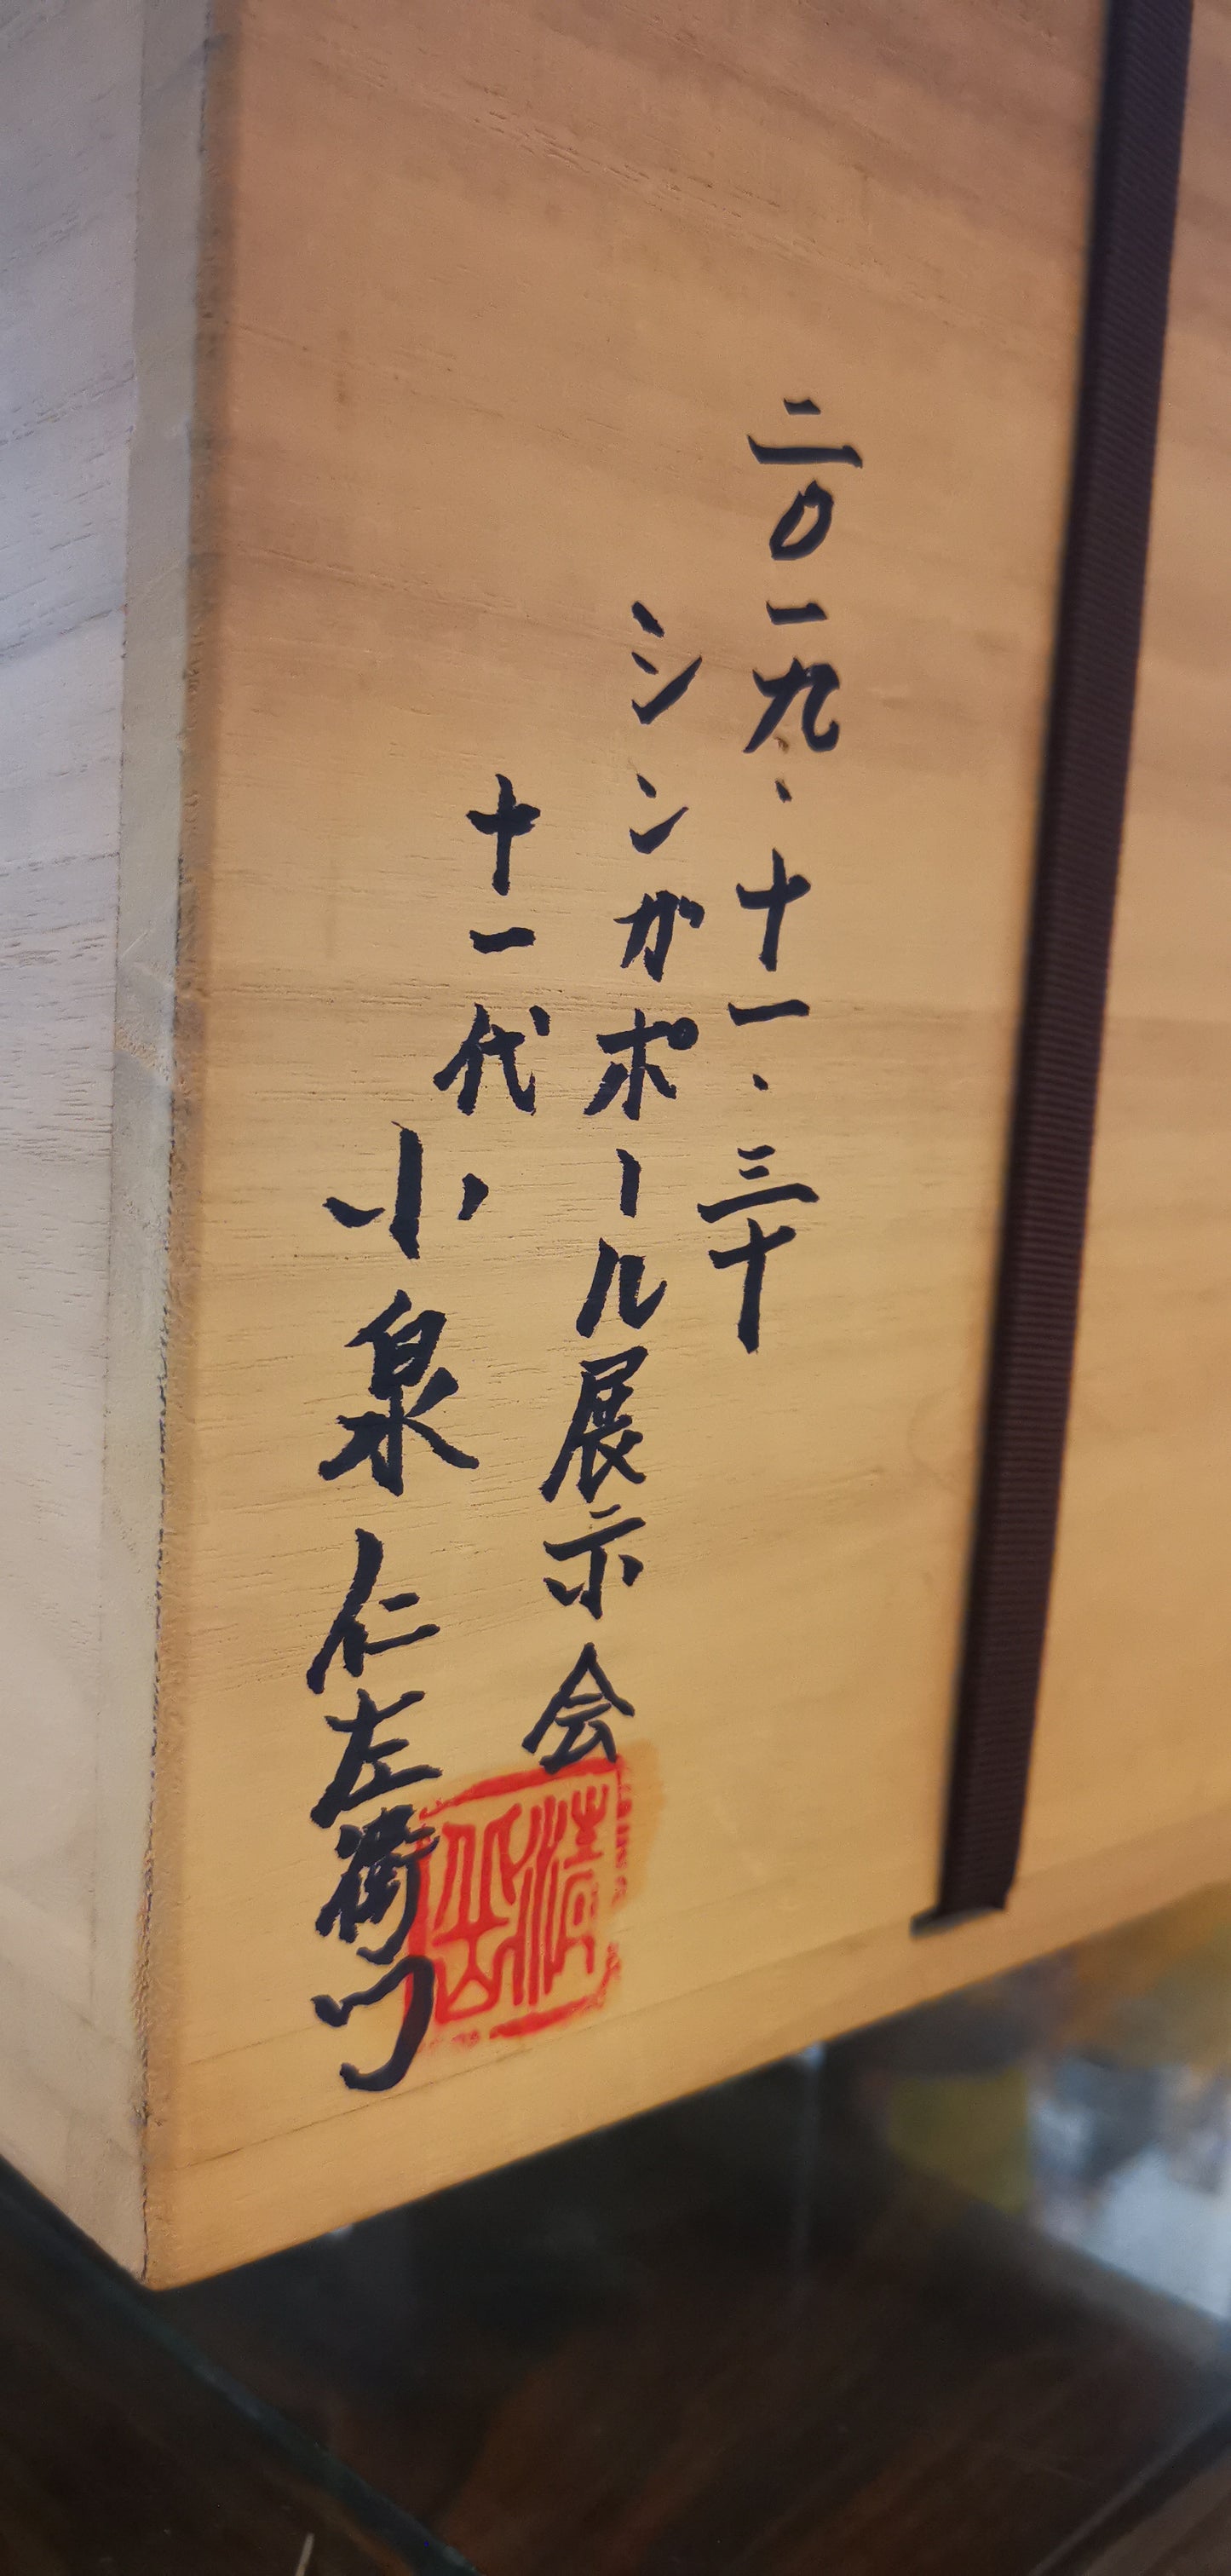 二〇一九.十一.三十
シンガポール展示会
十一代小泉仁左衛门